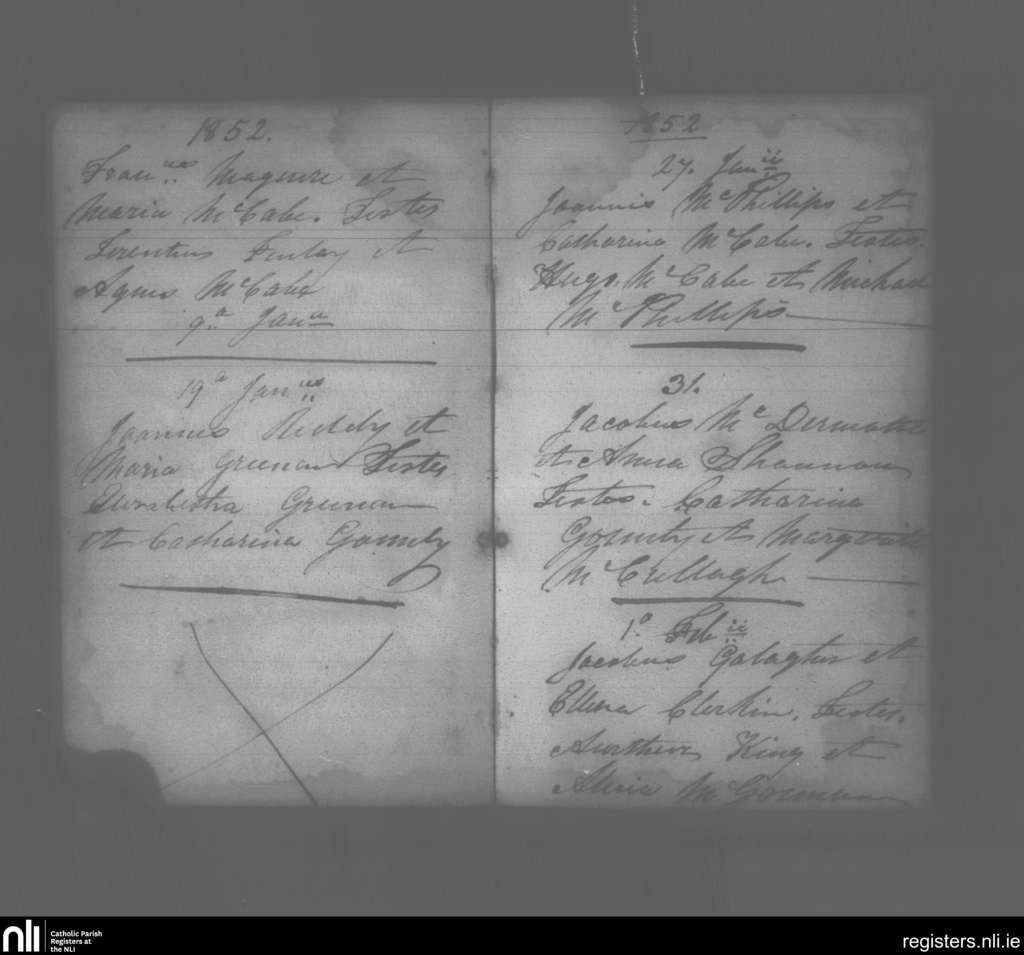 1852.
Fran.cus Maguire et
Maria McCabe. Testes
Terentius Finlay et
Agnes McCabe
9.a Jan.
19a Jan.
Joannes Reddy et
Maria Greenan Testes
Greenan
et Catharina Gormly
1852
27. Jan.ii
Joannis McPhillips et
Catharina McCabe. Testes.
Hugo McCabe et Michael
McPhillips
31.
Jacobus McDermott
et Anna Shannon
Testes. Catharina
Gormly et
McCullagh
1.o Feb.ii
Jacobus Galagher et
Ellena Clerkin. Testes.
King et
Alicia McGorman
nli
Catholic Parish
Registers at
the NLI
registers.nli.ie